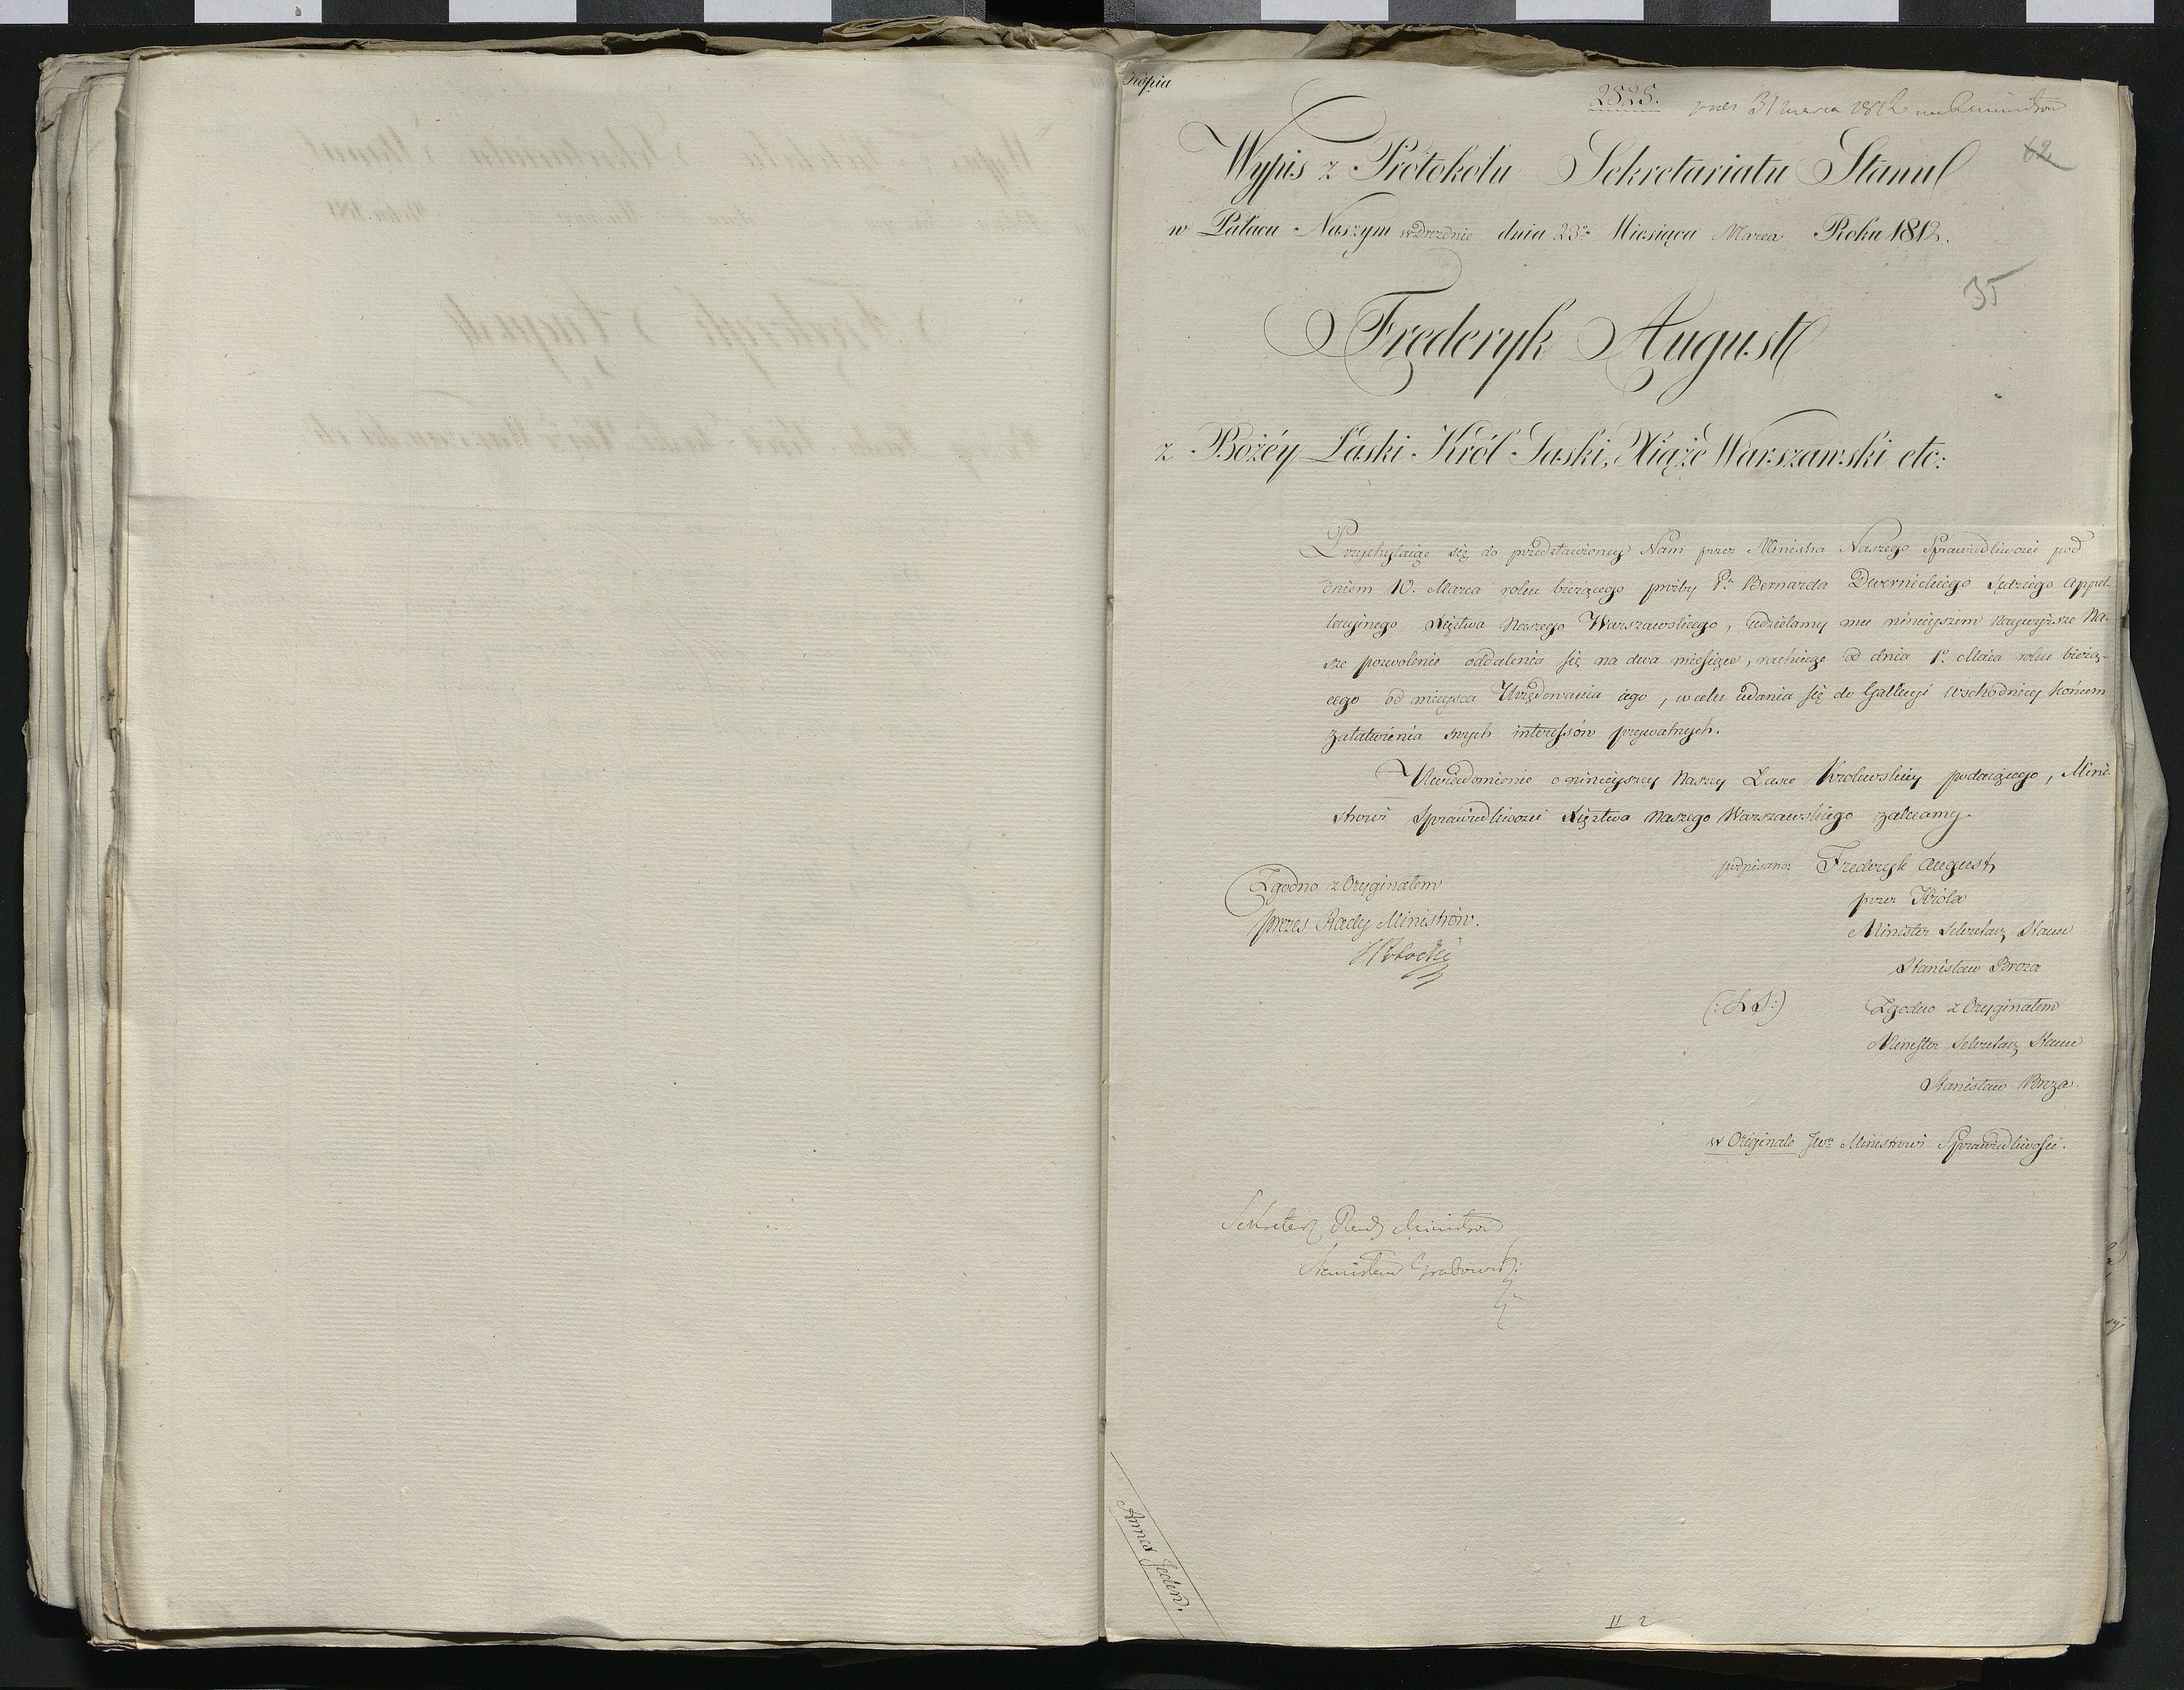 Kopia
2825. pres 31 marca 1812
62
Wypis z Protokołu Sekretariatu Stanu
w Pałacu Naszym w Dreznie dnia 23º Miesiąca Marca Roku 1812.
35
Frederyk August
z Bożéy Łaski Król Saski, Xiąże Warszawski etc:
Przychylaiąc się do przedstawioney Nam przez Ministra Naszego Sprawiedliwości pod
dniem 10. Marca roku bieżącego prośby Pa Bernarda Dwernickiego Sędziego Appel-
lacyinego Xięztwa Naszego Warszawskiego, udzielamy mu ninieyszem naywyższe Na-
sze pozwolenie oddalenia się na dwa miesiące, rachuiąc od dnia 1º Maia roku bieżą-
cego od mieysca Urzędowania iego, w celu udania się do Gallicyi wschodniey końcem
załatwienia swych interessów prywatnych.
Uwiadomienie o ninieyszey Naszey Łasce Krolewskiey podaiącego, Mini-
strowi Sprawiedliwości Xięztwa Naszego Warszawskiego zalecamy.
podpisano: Frederyk August,
przez Króla
Minister Sekretarz Stanu
Stanisław Breza
Zgodno z Oryginałem
prezes Rady Ministrów.
SPotocki
(: L.S :) Zgodno z Oryginałem
Minister Sekretarz Stanu
Stanisław Breza.
w Originale Jwu Ministrowi Sprawiedliwości.
Sekretarz Rady Ministrów
Stanisław Grabowski
Annex Jeden.
II 2